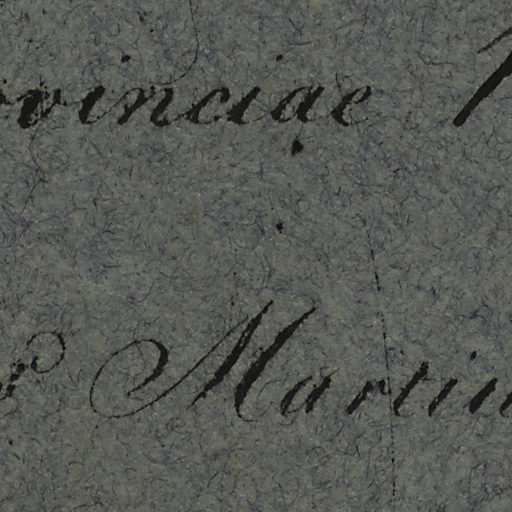 ovinciae
Martin